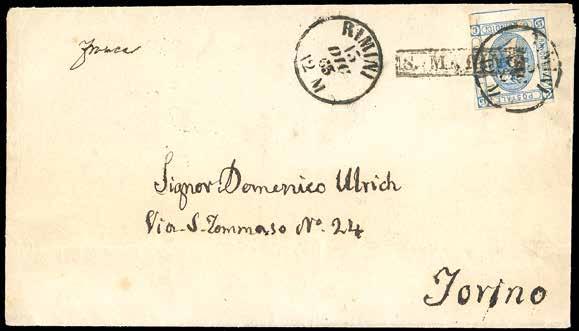 franca
RIMINI
15
DIC
63
12 M
S. M.
Signor Domenico Ulrich
Via S. Tommaso No. 24
Torino